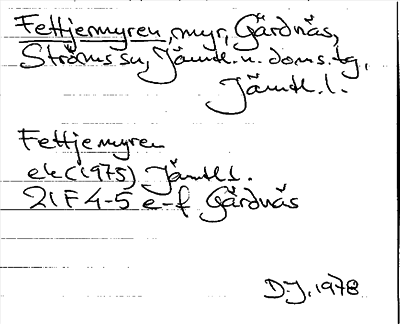 Fettjemyren, myr, Gärdnäs,
Ströms sn, Jämtl. n. doms.tg,
Jämtl. l.
Fettjemyren
ek (1975) Jämtl l.
21F 4-5 e-f Gärdnäs
D.J. 1978